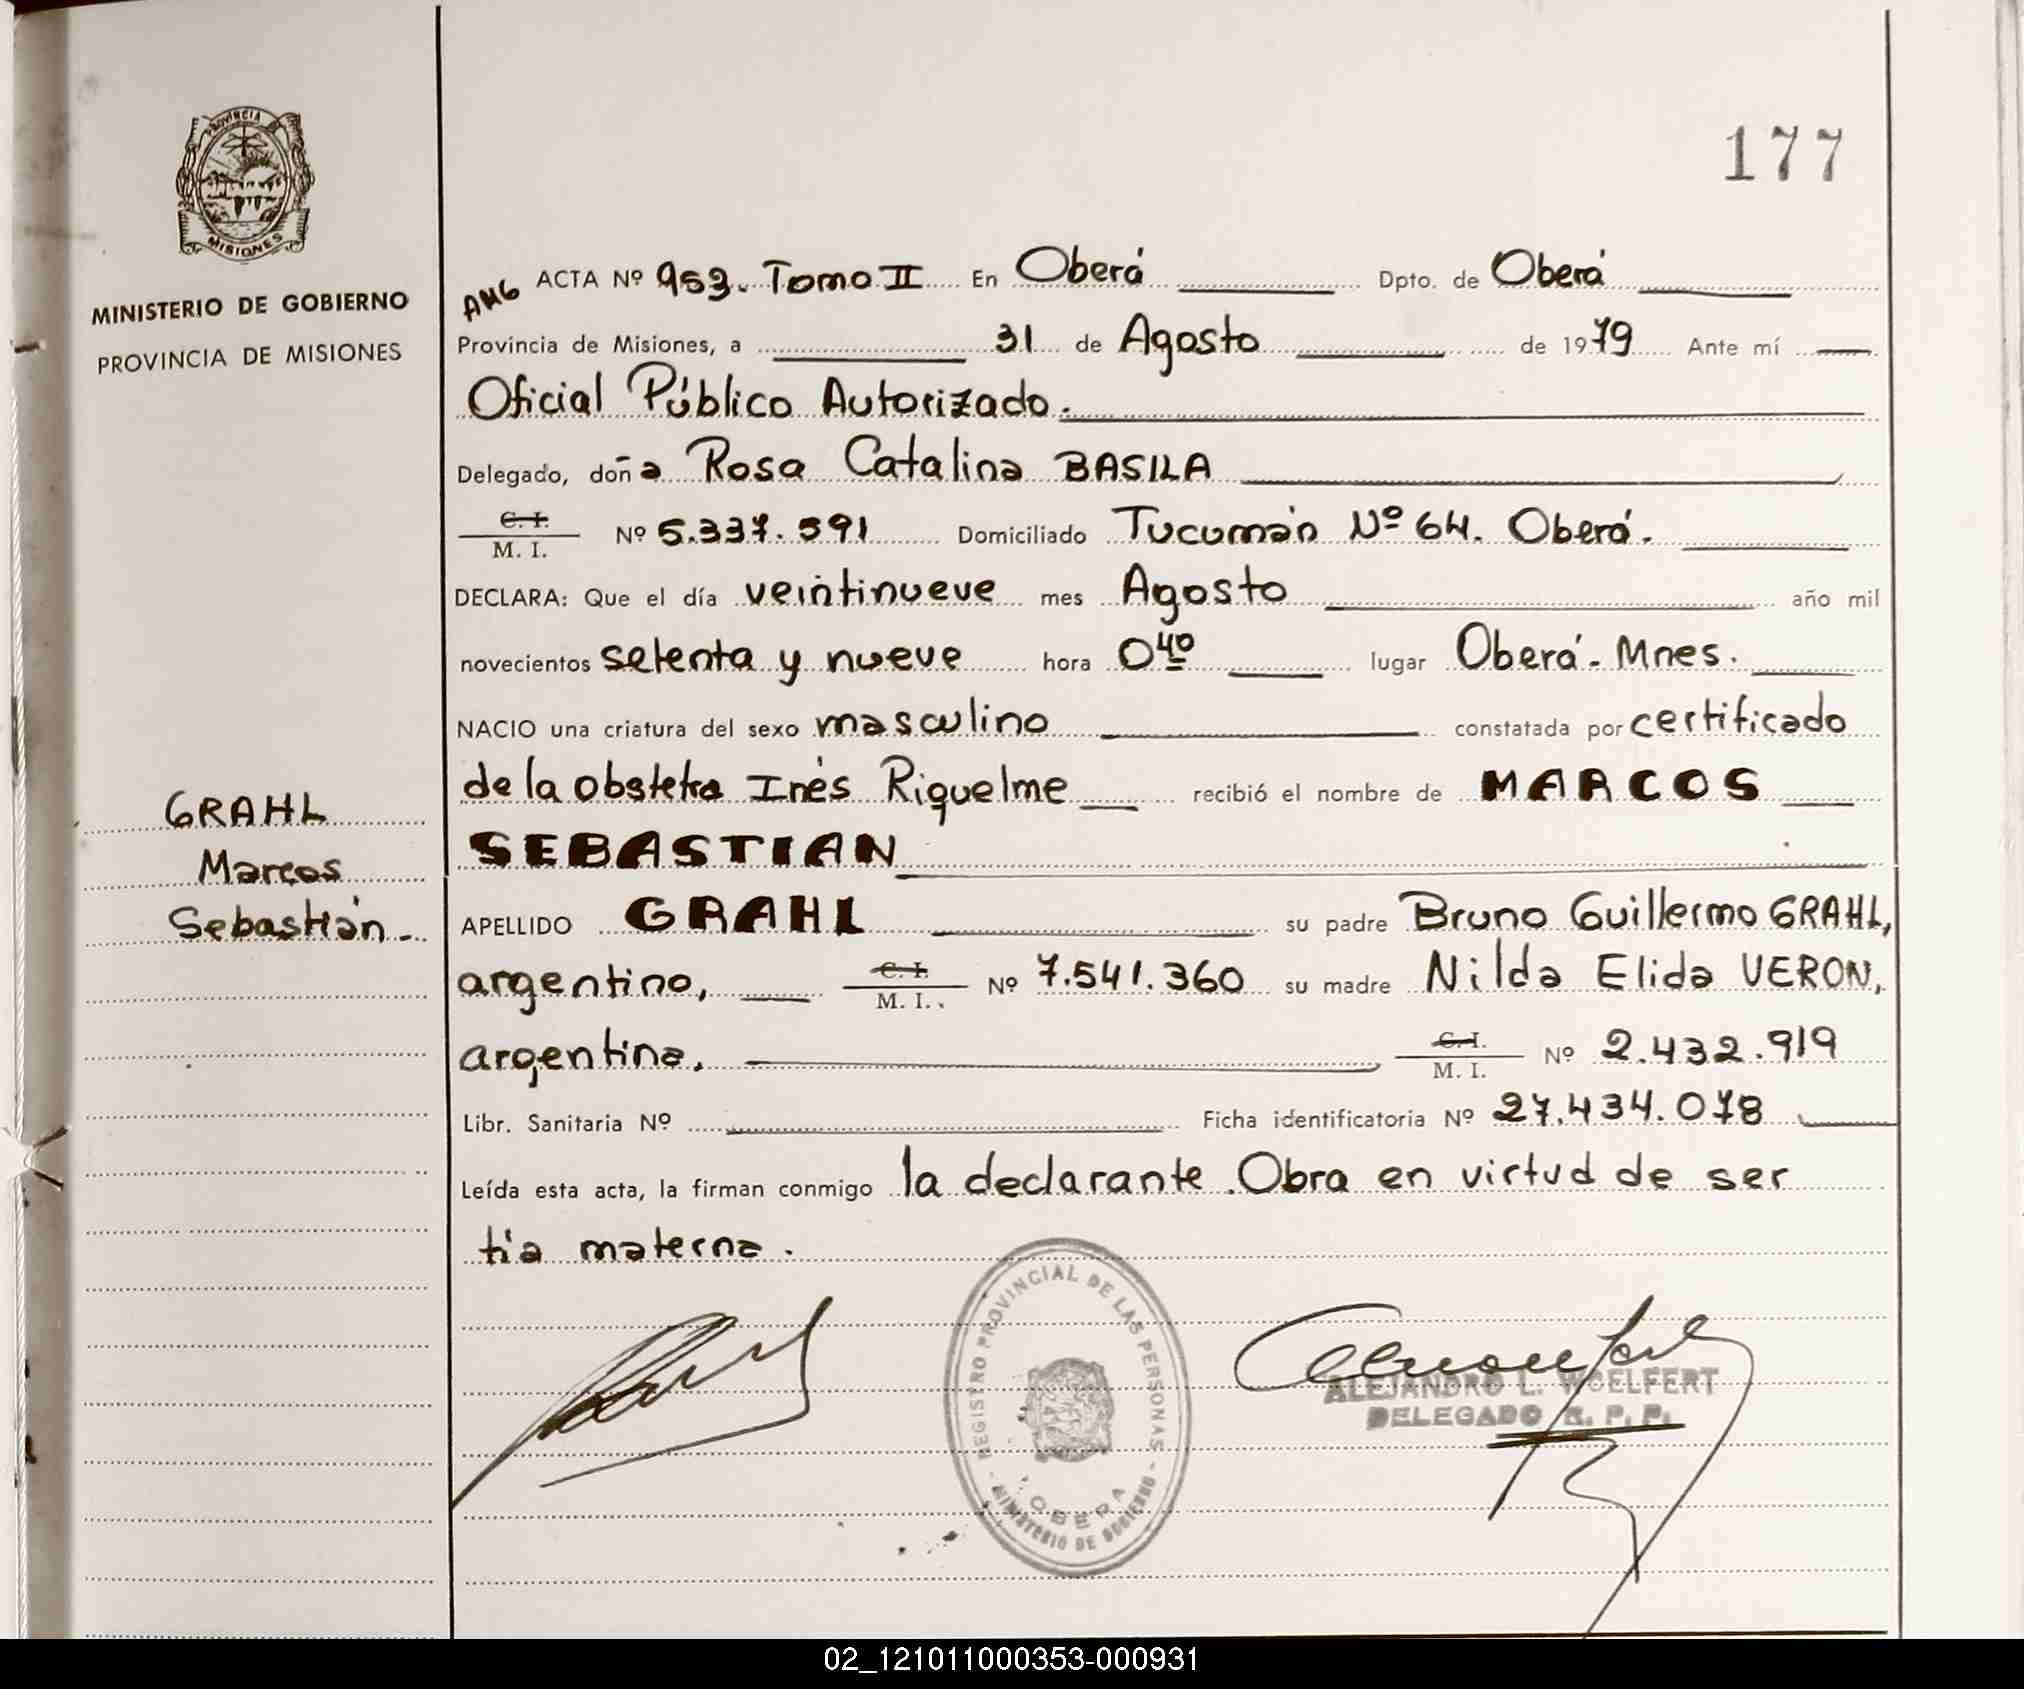 177
PROVINCIA DE
MISIONES
MINISTERIO DE GOBIERNO
PROVINCIA DE MISIONES
GRAHL
Marcos
Sebastián.-
AMG ACTA Nº 953. Tomo II En Oberá Dpto. de Oberá
Provincia de Misiones, a 31 de Agosto de 1979 Ante mí
Oficial Público Autorizado.
Delegado, doña Rosa Catalina BASILA
C. I. / M. I. Nº 5.337.591 Domiciliado Tucumán Nº 64. Oberá.
DECLARA: Que el día veintinueve mes Agosto año mil
novecientos setenta y nueve hora 0 40 lugar Oberá - Mnes.
NACIO una criatura del sexo masculino constatada por certificado
de la obstetra Inés Riquelme recibió el nombre de MARCOS
SEBASTIAN
APELLIDO GRAHL su padre Bruno Guillermo GRAHL,
argentino, C. I. / M. I. Nº 7.541.360 su madre Nilda Elida VERON,
argentina. C. I. / M. I. Nº 2.432.919
Libr. Sanitaria Nº Ficha identificatoria Nº 27.434.078
Leída esta acta, la firman conmigo la declarante. Obra en virtud de ser
tía materna.
REGISTRO PROVINCIAL DE LAS PERSONAS
- MINISTERIO DE GOBIERNO -
OBERA
ALEJANDRO L. WOELFERT
DELEGADO R. P. P.
02_121011000353-000931